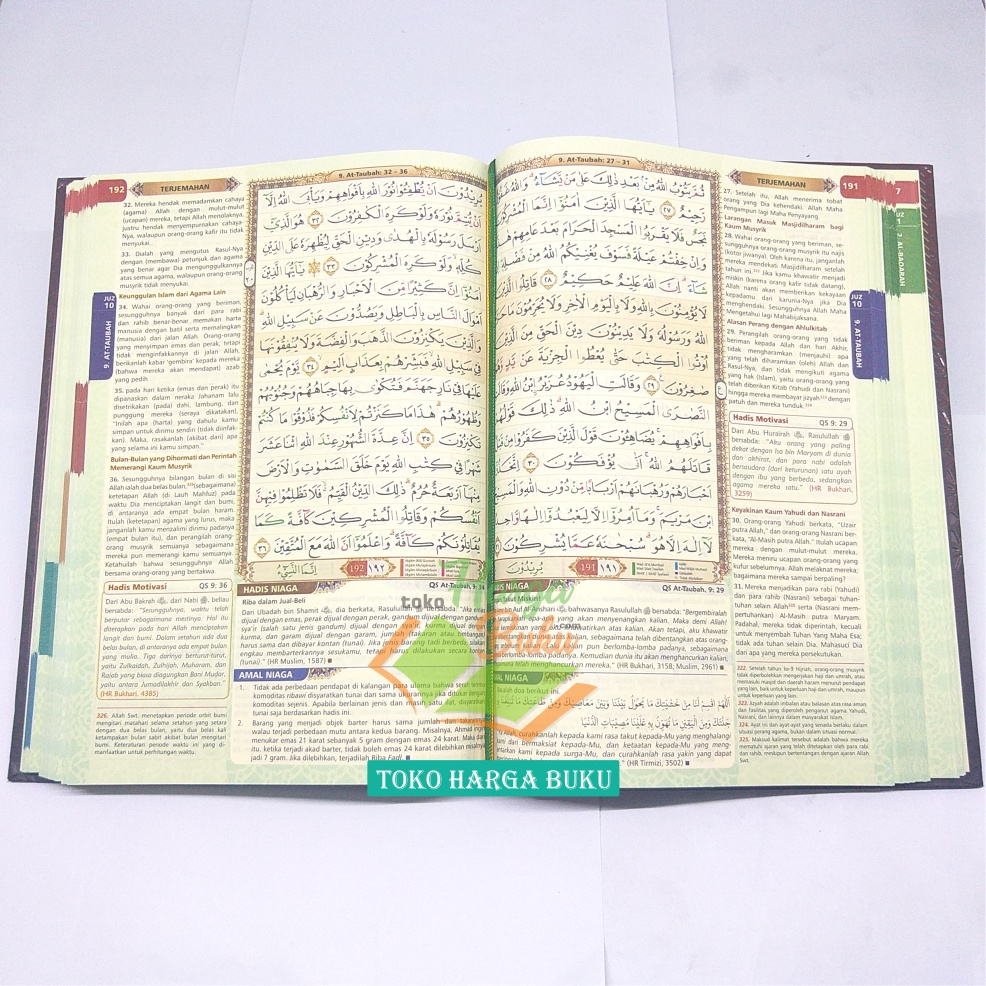 9. At-Taubah: 32 - 36
192
TERJEMAHAN
32. Mereka hendak memadamkan cahaya
(agama) Allah dengan mulut-mulut
(ucapan) mereka, tetapi Allah menolaknya,
justru hendak menyempurnakan cahaya-
Nya, walaupun orang-orang kafir itu tidak
menyukai.
33. Dialah yang mengutus Rasul-Nya
dengan (membawa) petunjuk dan agama
yang benar agar Dia mengunggulkannya
atas semua agama, walaupun orang-orang
musyrik tidak menyukai.
Keunggulan Islam dari Agama Lain
34. Wahai orang-orang yang beriman,
sesungguhnya banyak dari para rabi
dan rahib benar-benar memakan harta
manusia dengan batil serta memalingkan
(manusia) dari jalan Allah. Orang-orang
yang menyimpan emas dan perak, tetapi
tidak menginfakkannya di jalan Allah,
berikanlah kabar 'gembira' kepada mereka
(bahwa mereka akan mendapat) azab
yang pedih
35. pada hari ketika (emas dan perak) itu
dipanaskan dalam neraka Jahanam lalu
disetrikakan (pada) dahi, lambung, dan
punggung mereka (seraya dikatakan),
"Inilah apa (harta) yang dahulu kamu
simpan untuk dirimu sendiri (tidak diinfak-
kan). Maka, rasakanlah (akibat dari) apa
yang selama ini kamu simpan."
Bulan-Bulan yang Dihormati dan Perintah
Memerangi Kaum Musyrik
36. Sesungguhnya bilangan bulan di sisi
Allah ialah dua belas bulan,
(sebagaimana)
ketetapan Allah (di Lauh Mahfuz) pada
waktu Dia menciptakan langit dan bumi,
di antaranya ada empat bulan haram.
Itulah (ketetapan) agama yang lurus, maka
janganlah kamu menzalimi dirimu padanya
(empat bulan itu), dan perangilah orang-
orang musyrik semuanya sebagaimana
mereka pun memerangi kamu semuanya.
Ketahuilah bahwa sesungguhnya Allah
bersama orang-orang yang bertakwa.
Hadis Motivasi QS 9: 36
Dari Abu Bakrah, dari Nabi, beliau
bersabda: "Sesungguhnya, waktu telah
berputar sebagaimana mestinya. Hal itu
ditetapkan pada hari Allah menciptakan
langit dan bumi. Dalam setahun ada dua
belas bulan, di antaranya ada empat bulan
yang mulia. Tiga darinya berturut-turut,
yaitu Zulkaidah, Zulhijah, Muharam, dan
Rajab yang biasa diagungkan Bani Mudar,
yaitu antara Jumadilakhir dan Syakban."
(HR Bukhari, 4385)
326. Allah Swt. menetapkan periode orbit bumi
mengitari matahari selama setahun yang setara
dengan dua belas bulan, yaitu dua belas kali
ketampakan bulan sabit akibat bulan mengitari
bumi. Keteraturan periode waktu ini yang di-
manfaatkan untuk perhitungan waktu.
JUZ
10
9. AT-TAUBAH
يُرِيْدُوْنَ اَنْ يُّطْفِـُٔوْا نُوْرَ اللّٰهِ بِاَفْوَاهِهِمْ وَيَأْبَى اللّٰهُ اِلَّآ
اَنْ يُّتِمَّ نُوْرَهٗ وَلَوْ كَرِهَ الْكٰفِرُوْنَ ۝٣٢ هُوَ الَّذِيْٓ
اَرْسَلَ رَسُوْلَهٗ بِالْهُدٰى وَدِيْنِ الْحَقِّ لِيُظْهِرَهٗ عَلَى الدِّيْنِ
كُلِّهٖ وَلَوْ كَرِهَ الْمُشْرِكُوْنَ ۝٣٣ يٰٓاَيُّهَا الَّذِيْنَ
اٰمَنُوْٓا اِنَّ كَثِيْرًا مِّنَ الْاَحْبَارِ وَالرُّهْبَانِ لَيَأْكُلُوْنَ
اَمْوَالَ النَّاسِ بِالْبَاطِلِ وَيَصُدُّوْنَ عَنْ سَبِيْلِ اللّٰهِ
وَالَّذِيْنَ يَكْنِزُوْنَ الذَّهَبَ وَالْفِضَّةَ وَلَا يُنْفِقُوْنَهَا
فِيْ سَبِيْلِ اللّٰهِ فَبَشِّرْهُمْ بِعَذَابٍ اَلِيْمٍ ۝٣٤ يَّوْمَ يُحْمٰى
عَلَيْهَا فِيْ نَارِ جَهَنَّمَ فَتُكْوٰى بِهَا جِبَاهُهُمْ وَجُنُوْبُهُمْ
وَظُهُوْرُهُمْ هٰذَا مَا كَنَزْتُمْ لِاَنْفُسِكُمْ فَذُوْقُوْا مَا كُنْتُمْ
تَكْنِزُوْنَ ۝٣٥ اِنَّ عِدَّةَ الشُّهُوْرِ عِنْدَ اللّٰهِ اثْنَا عَشَرَ
شَهْرًا فِيْ كِتٰبِ اللّٰهِ يَوْمَ خَلَقَ السَّمٰوٰتِ وَالْاَرْضَ
مِنْهَآ اَرْبَعَةٌ حُرُمٌ ذٰلِكَ الدِّيْنُ الْقَيِّمُ فَلَا تَظْلِمُوْا فِيْهِنَّ
اَنْفُسَكُمْ وَقَاتِلُوا الْمُشْرِكِيْنَ كَاۤفَّةً كَمَا
يُقَاتِلُوْنَكُمْ كَاۤفَّةً وَاعْلَمُوْٓا اَنَّ اللّٰهَ مَعَ الْمُتَّقِيْنَ ۝٣٦
192 ١٩٢
اِنَّمَا النَّسِيْٓءُ
HADIS NIAGA QS At-Taubah, 9: 34
Riba dalam Jual-Beli
Dari Ubadah bin Shamit, dia berkata, Rasulullah bersabda: "Jika emas
dijual dengan emas, perak dijual dengan perak, gandum dijual dengan gandum,
sya'ir (salah satu jenis gandum) dijual dengan sya'ir, kurma dijual dengan
kurma, dan garam dijual dengan garam, jumlah
harus sama dan dibayar kontan (tunai). Jika jenis barang tadi berbeda, silakan
engkau membarterkannya sesukamu, tetapi harus dilakukan secara kontan
(tunai)." (HR Muslim, 1587)
AMAL NIAGA
1. Tidak ada perbedaan pendapat di kalangan para ulama bahwa serah terima
komoditas ribawi disyaratkan tunai dan sama
komoditas sejenis. Apabila berlainan jenis dan
tunai saja berdasarkan hadis ini.
2. Barang yang menjadi objek barter harus sama jumlah
walau terjadi perbedaan mutu antara kedua barang. Misalnya, Ahmad
menukarkan emas 21 karat sebanyak 5 gram dengan emas 24 karat. Maka
itu, ketika terjadi akad barter, tidak boleh emas 24 karat dilebihkan
jadi 7 gram. Jika dilebihkan, terjadilah Riba Fadl.
9. At-Taubah: 27 - 31
TERJEMAHAN
191
7
ثُمَّ يَتُوْبُ اللّٰهُ مِنْۢ بَعْدِ ذٰلِكَ عَلٰى مَنْ يَّشَاۤءُ وَاللّٰهُ
رَّحِيْمٌ ۝٢٧ يٰٓاَيُّهَا الَّذِيْنَ اٰمَنُوْٓا اِنَّمَا الْمُشْرِكُوْنَ
نَجَسٌ فَلَا يَقْرَبُوا الْمَسْجِدَ الْحَرَامَ بَعْدَ عَامِهِمْ
وَاِنْ خِفْتُمْ عَيْلَةً فَسَوْفَ يُغْنِيْكُمُ اللّٰهُ مِنْ فَضْلِهٖٓ
شَاۤءَ اِنَّ اللّٰهَ عَلِيْمٌ حَكِيْمٌ ۝٢٨ قَاتِلُوا
لَا يُؤْمِنُوْنَ بِاللّٰهِ وَلَا بِالْيَوْمِ الْاٰخِرِ وَلَا يُحَرِّمُوْنَ مَا
اللّٰهُ وَرَسُوْلُهٗ وَلَا يَدِيْنُوْنَ دِيْنَ الْحَقِّ مِنَ
اُوْتُوا الْكِتٰبَ حَتّٰى يُعْطُوا الْجِزْيَةَ عَنْ يَّدٍ
صٰغِرُوْنَ ۝٢٩ وَقَالَتِ الْيَهُوْدُ عُزَيْرُ ابْنُ اللّٰهِ
النَّصٰرَى الْمَسِيْحُ ابْنُ اللّٰهِ ذٰلِكَ قَوْلُهُمْ
بِاَفْوَاهِهِمْ يُضَاهِـُٔوْنَ قَوْلَ الَّذِيْنَ كَفَرُوْا مِنْ
قَاتَلَهُمُ اللّٰهُ اَنّٰى يُؤْفَكُوْنَ ۝٣٠
اَحْبَارَهُمْ وَرُهْبَانَهُمْ اَرْبَابًا مِّنْ دُوْنِ اللّٰهِ وَالْمَسِيْحَ
ابْنَ مَرْيَمَ وَمَآ اُمِرُوْٓا اِلَّا لِيَعْبُدُوْٓا اِلٰهًا وَّاحِدًا
لَآ اِلٰهَ اِلَّا هُوَ سُبْحٰنَهٗ عَمَّا يُشْرِكُوْنَ
191 ١٩١
يُرِيْدُوْنَ
27. Setelah itu, Allah menerima tobat
orang yang Dia kehendaki. Allah Maha
Pengampun lagi Maha Penyayang.
Larangan Masuk Masjidilharam bagi
Kaum Musyrik
28. Wahai orang-orang yang beriman, se-
sungguhnya orang-orang musyrik itu najis
(kotor jiwanya). Oleh karena itu, janganlah
mereka mendekati Masjidilharam setelah
tahun ini. Jika kamu khawatir menjadi
miskin (karena orang kafir tidak datang),
Allah nanti akan memberikan kekayaan
kepadamu dari karunia-Nya jika Dia
menghendaki. Sesungguhnya Allah Maha
Mengetahui lagi Mahabijaksana.
Alasan Perang dengan Ahlulkitab
29. Perangilah orang-orang yang tidak
beriman kepada Allah dan hari Akhir,
tidak mengharamkan (menjauhi) apa
yang telah diharamkan (oleh) Allah dan
Rasul-Nya, dan tidak mengikuti agama
yang hak (Islam), yaitu orang-orang yang
telah diberikan Kitab (Yahudi dan Nasrani)
hingga mereka membayar jizyah dengan
patuh dan mereka tunduk.
Hadis Motivasi QS 9: 29
Dari Abu Hurairah, Rasulullah
bersabda: "Aku orang yang paling
dekat dengan Isa bin Maryam di dunia
dan akhirat, dan para nabi adalah
bersaudara (dari keturunan) satu ayah
dengan ibu yang berbeda, sedangkan
agama mereka satu." (HR Bukhari,
3259)
Keyakinan Kaum Yahudi dan Nasrani
30. Orang-orang Yahudi berkata, "Uzair
putra Allah," dan orang-orang Nasrani ber-
kata, "Al-Masih putra Allah." Itulah ucapan
mereka dengan mulut-mulut mereka.
Mereka meniru ucapan orang-orang kafir
sebelumnya. Allah melaknat mereka;
bagaimana mereka sampai berpaling?
31. Mereka menjadikan para rabi (Yahudi)
dan para rahib (Nasrani) sebagai tuhan-
tuhan selain Allah serta (Nasrani mem-
pertuhankan) Al-Masih putra Maryam.
Padahal, mereka tidak diperintah, kecuali
untuk menyembah Tuhan Yang Maha Esa;
tidak ada tuhan selain Dia. Mahasuci Dia
dari apa yang mereka persekutukan.
322. Setelah tahun ke-9 Hijriah, orang-orang musyrik
tidak diperbolehkan mengerjakan haji dan umrah, atau
memasuki masjid dan daerah haram menurut pendapat
yang lain, baik untuk keperluan haji dan umrah, maupun
untuk keperluan yang lain.
323. Jizyah adalah imbalan atau balasan atas rasa aman
dan fasilitas yang diperoleh penganut agama Yahudi,
Nasrani, dan lainnya dalam masyarakat Islam.
324. Ayat ini dan ayat-ayat yang senada berlaku dalam
situasi perang, bukan dalam situasi normal.
325. Maksud kalimat tersebut adalah bahwa mereka
mematuhi ajaran yang telah ditetapkan oleh para rabi
dan rahib, meskipun bertentangan dengan ajaran Allah
Swt.
JUZ
10
9. AT-TAUBAH
2. AL-BAQARAH
HADIS NIAGA QS At-Taubah, 9: 29
bahwasanya Rasulullah bersabda: "Bergembiralah
apa yang akan menyenangkan kalian. Maka demi Allah!
khawatirkan atas kalian. Akan tetapi, aku khawatir
sebagaimana telah dibentangkan atas orang-
pun berlomba padanya, sebagaimana
berlomba-lomba padanya. Kemudian dunia itu akan menghancurkan kalian,
telah menghancurkan mereka." (HR Bukhari, 3158; Muslim, 2961)
AMAL NIAGA
Bacalah doa berikut ini.
curahkanlah kepada kami rasa takut kepada-Mu yang menghalangi
dan bermaksiat kepada-Mu, dan ketaatan kepada-Mu yang meng-
antarkan kami kepada surga-Mu, dan curahkanlah rasa yakin yang dapat
(HR Tirmizi, 3502)
toko
Harga
Buku
.com
TOKO HARGA BUKU